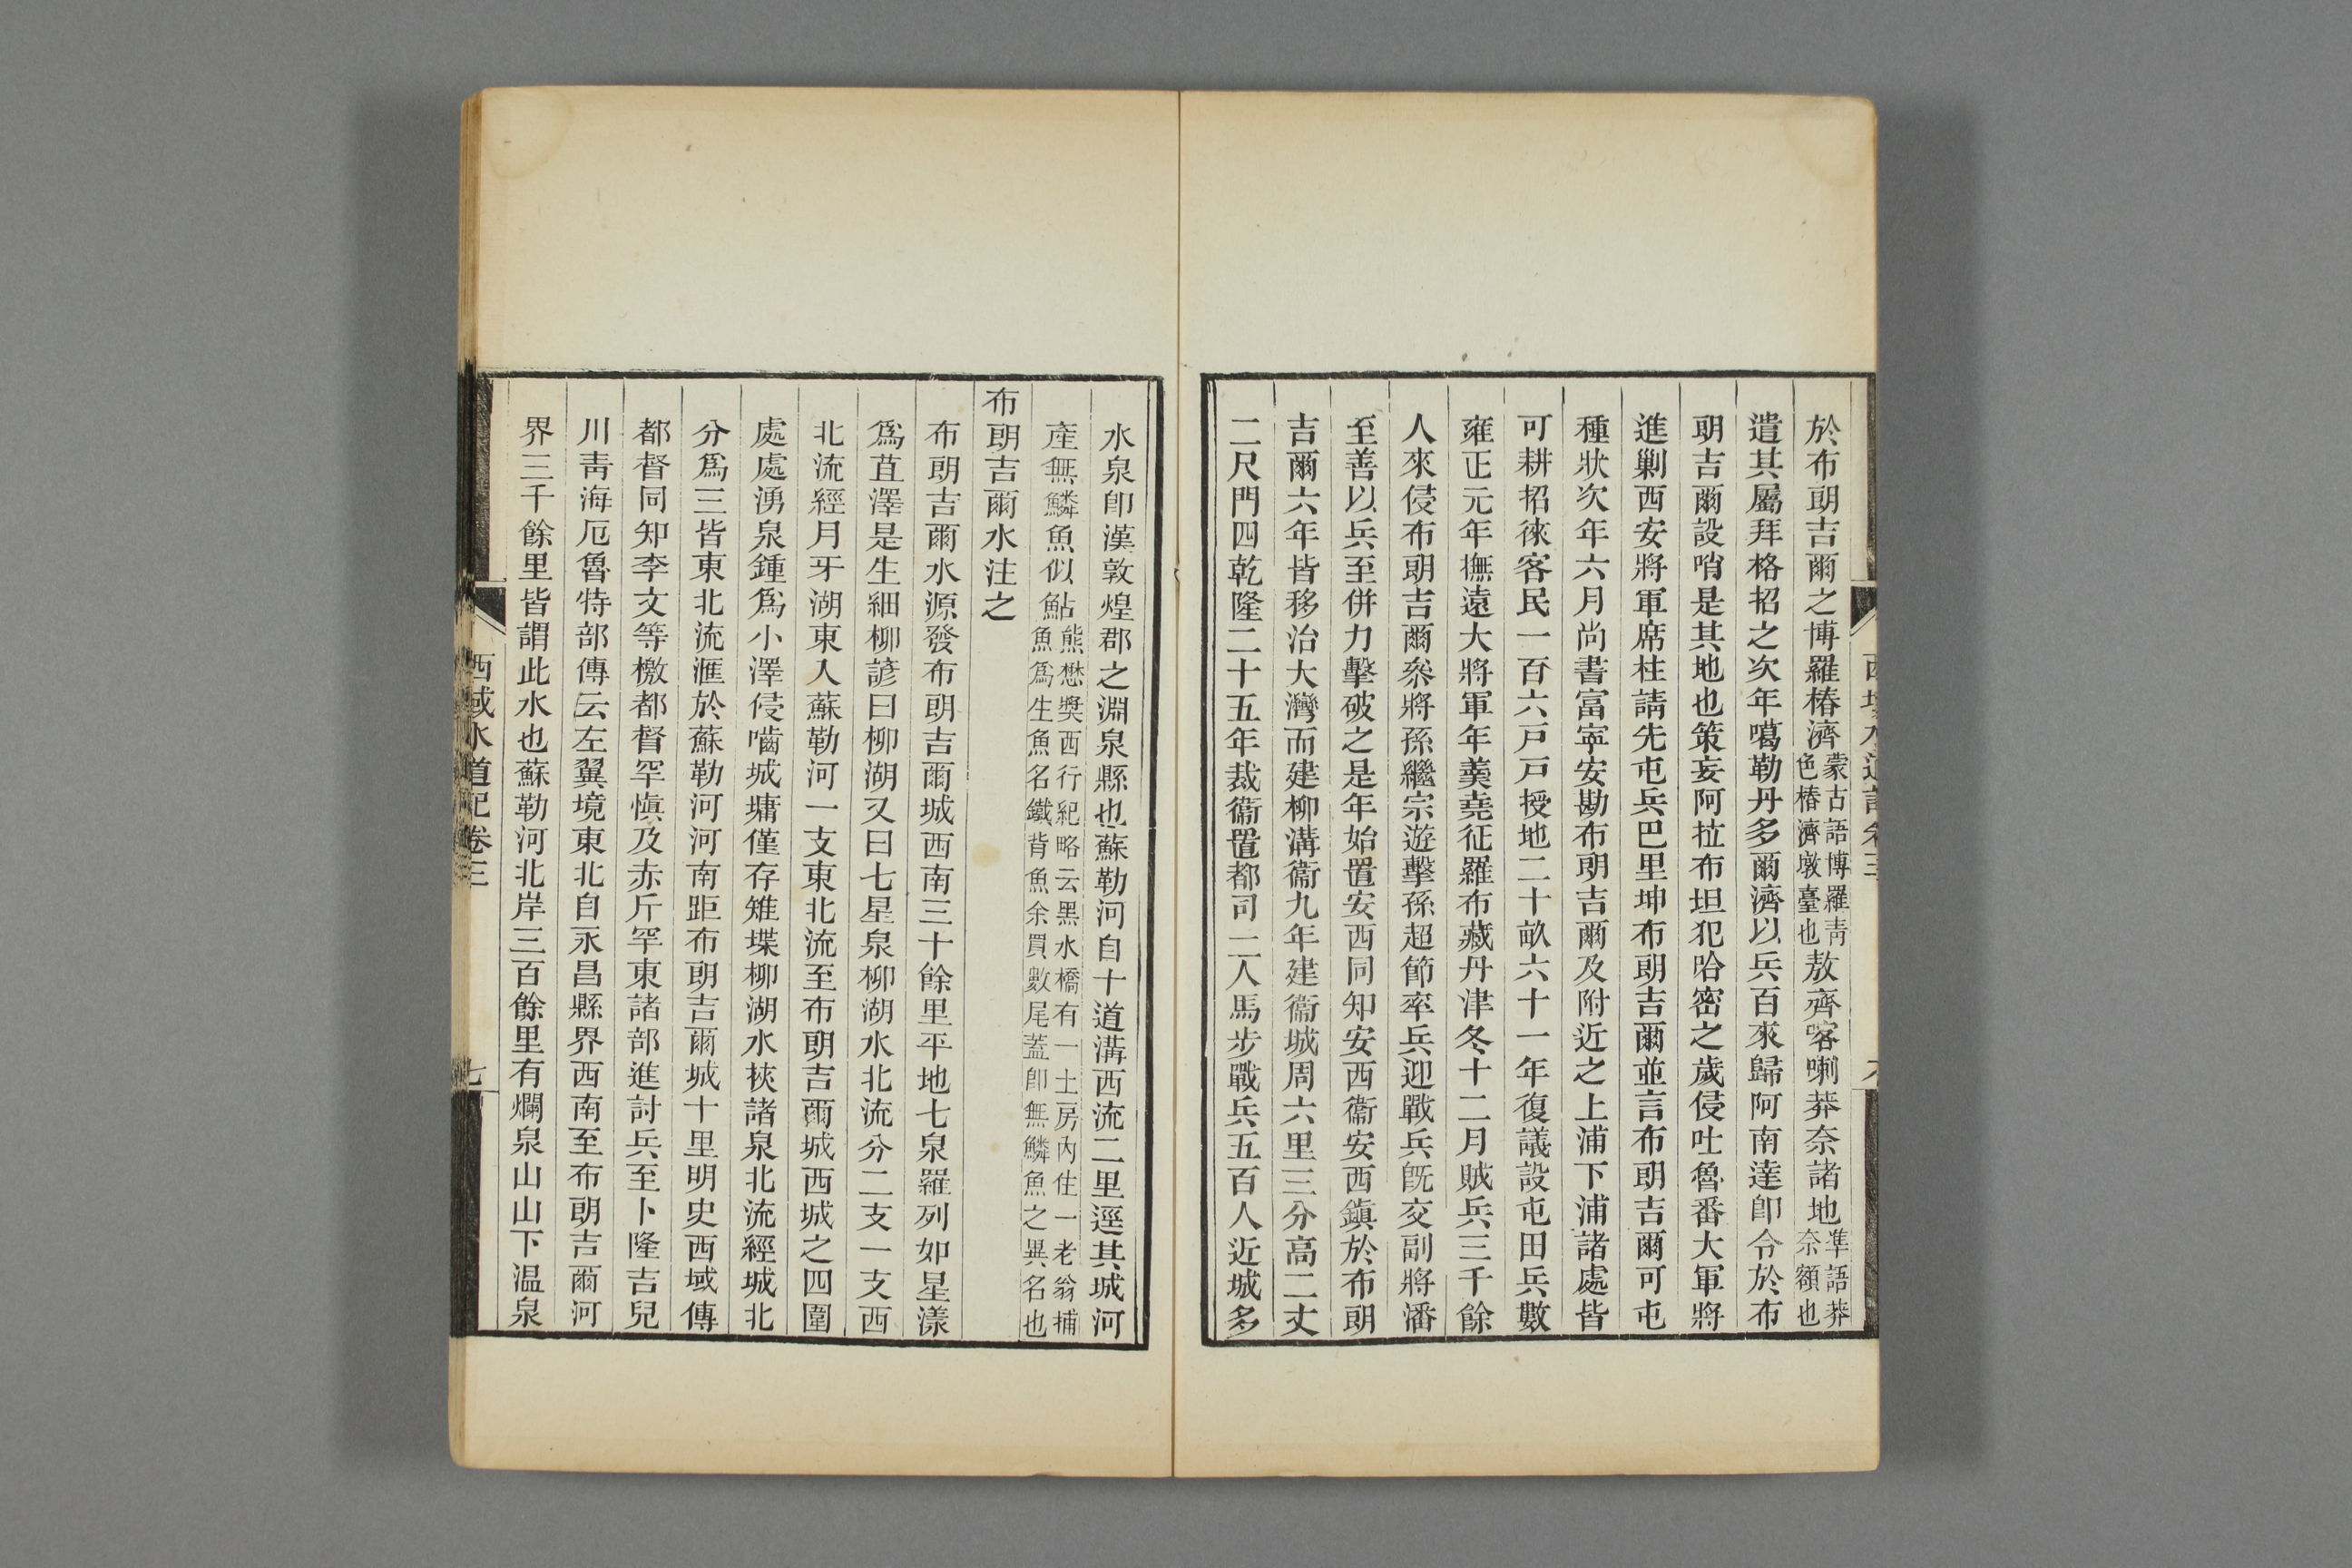 於布朙吉爾之博羅椿濟蒙古語博羅靑色椿濟墩臺也敖齊喀喇莽奈諸地準語莽奈額也
遣其屬拜格招之次年噶勒丹多爾濟以兵百來歸阿南達卽令於布
朙吉爾設哨是其地也策妄阿拉布坦犯哈密之歲侵吐魯番大軍將
進剿西安將軍席柱請先屯兵巴里坤布朙吉爾並言布朙吉爾可屯
種狀次年六月尚書富寧安勘布朙吉爾及附近之上浦下浦諸處皆
可耕招徠客民一百六戶戶授地二十畝六十一年復議設屯田兵數
雍正元年撫遠大將軍年羹堯征羅布藏丹津冬十二月賊兵三千餘
人來侵布朙吉爾叅將孫繼宗遊擊孫超節率兵迎戰兵旣交副將潘
至善以兵至併力擊破之是年始置安西同知安西衞安西鎭於布朙
吉爾六年皆移治大灣而建柳溝衞九年建衞城周六里三分高二丈
二尺門四乾隆二十五年裁衞置都司一人馬步戰兵五百人近城多
水泉卽漢敦煌郡之淵泉縣也蘇勒河自十道溝西流二里逕其城河
產無鱗魚似鮎熊懋奬西行紀略云黑水橋有一土房內住一老翁捕魚爲生魚名鐵背魚余買數尾蓋卽無鱗魚之異名也
布朙吉爾水注之
布朙吉爾水源發布朙吉爾城西南三十餘里平地七泉羅列如星漾
爲苴澤是生細柳諺曰柳湖又曰七星泉柳湖水北流分二支一支西
北流經月牙湖東入蘇勒河一支東北流至布朙吉爾城西城之四圍
處處湧泉鍾爲小澤侵嚙城墉僅存雉堞柳湖水挾諸泉北流經城北
分爲三皆東北流滙於蘇勒河河南距布朙吉爾城十里明史西域傳
都督同知李文等檄都督罕愼及赤斤罕東諸部進討兵至卜隆吉兒
川靑海厄魯特部傳云左翼境東北自永昌縣界西南至布朙吉爾河
界三千餘里皆謂此水也蘇勒河北岸三百餘里有爛泉山山下溫泉
西域水道記卷三
七